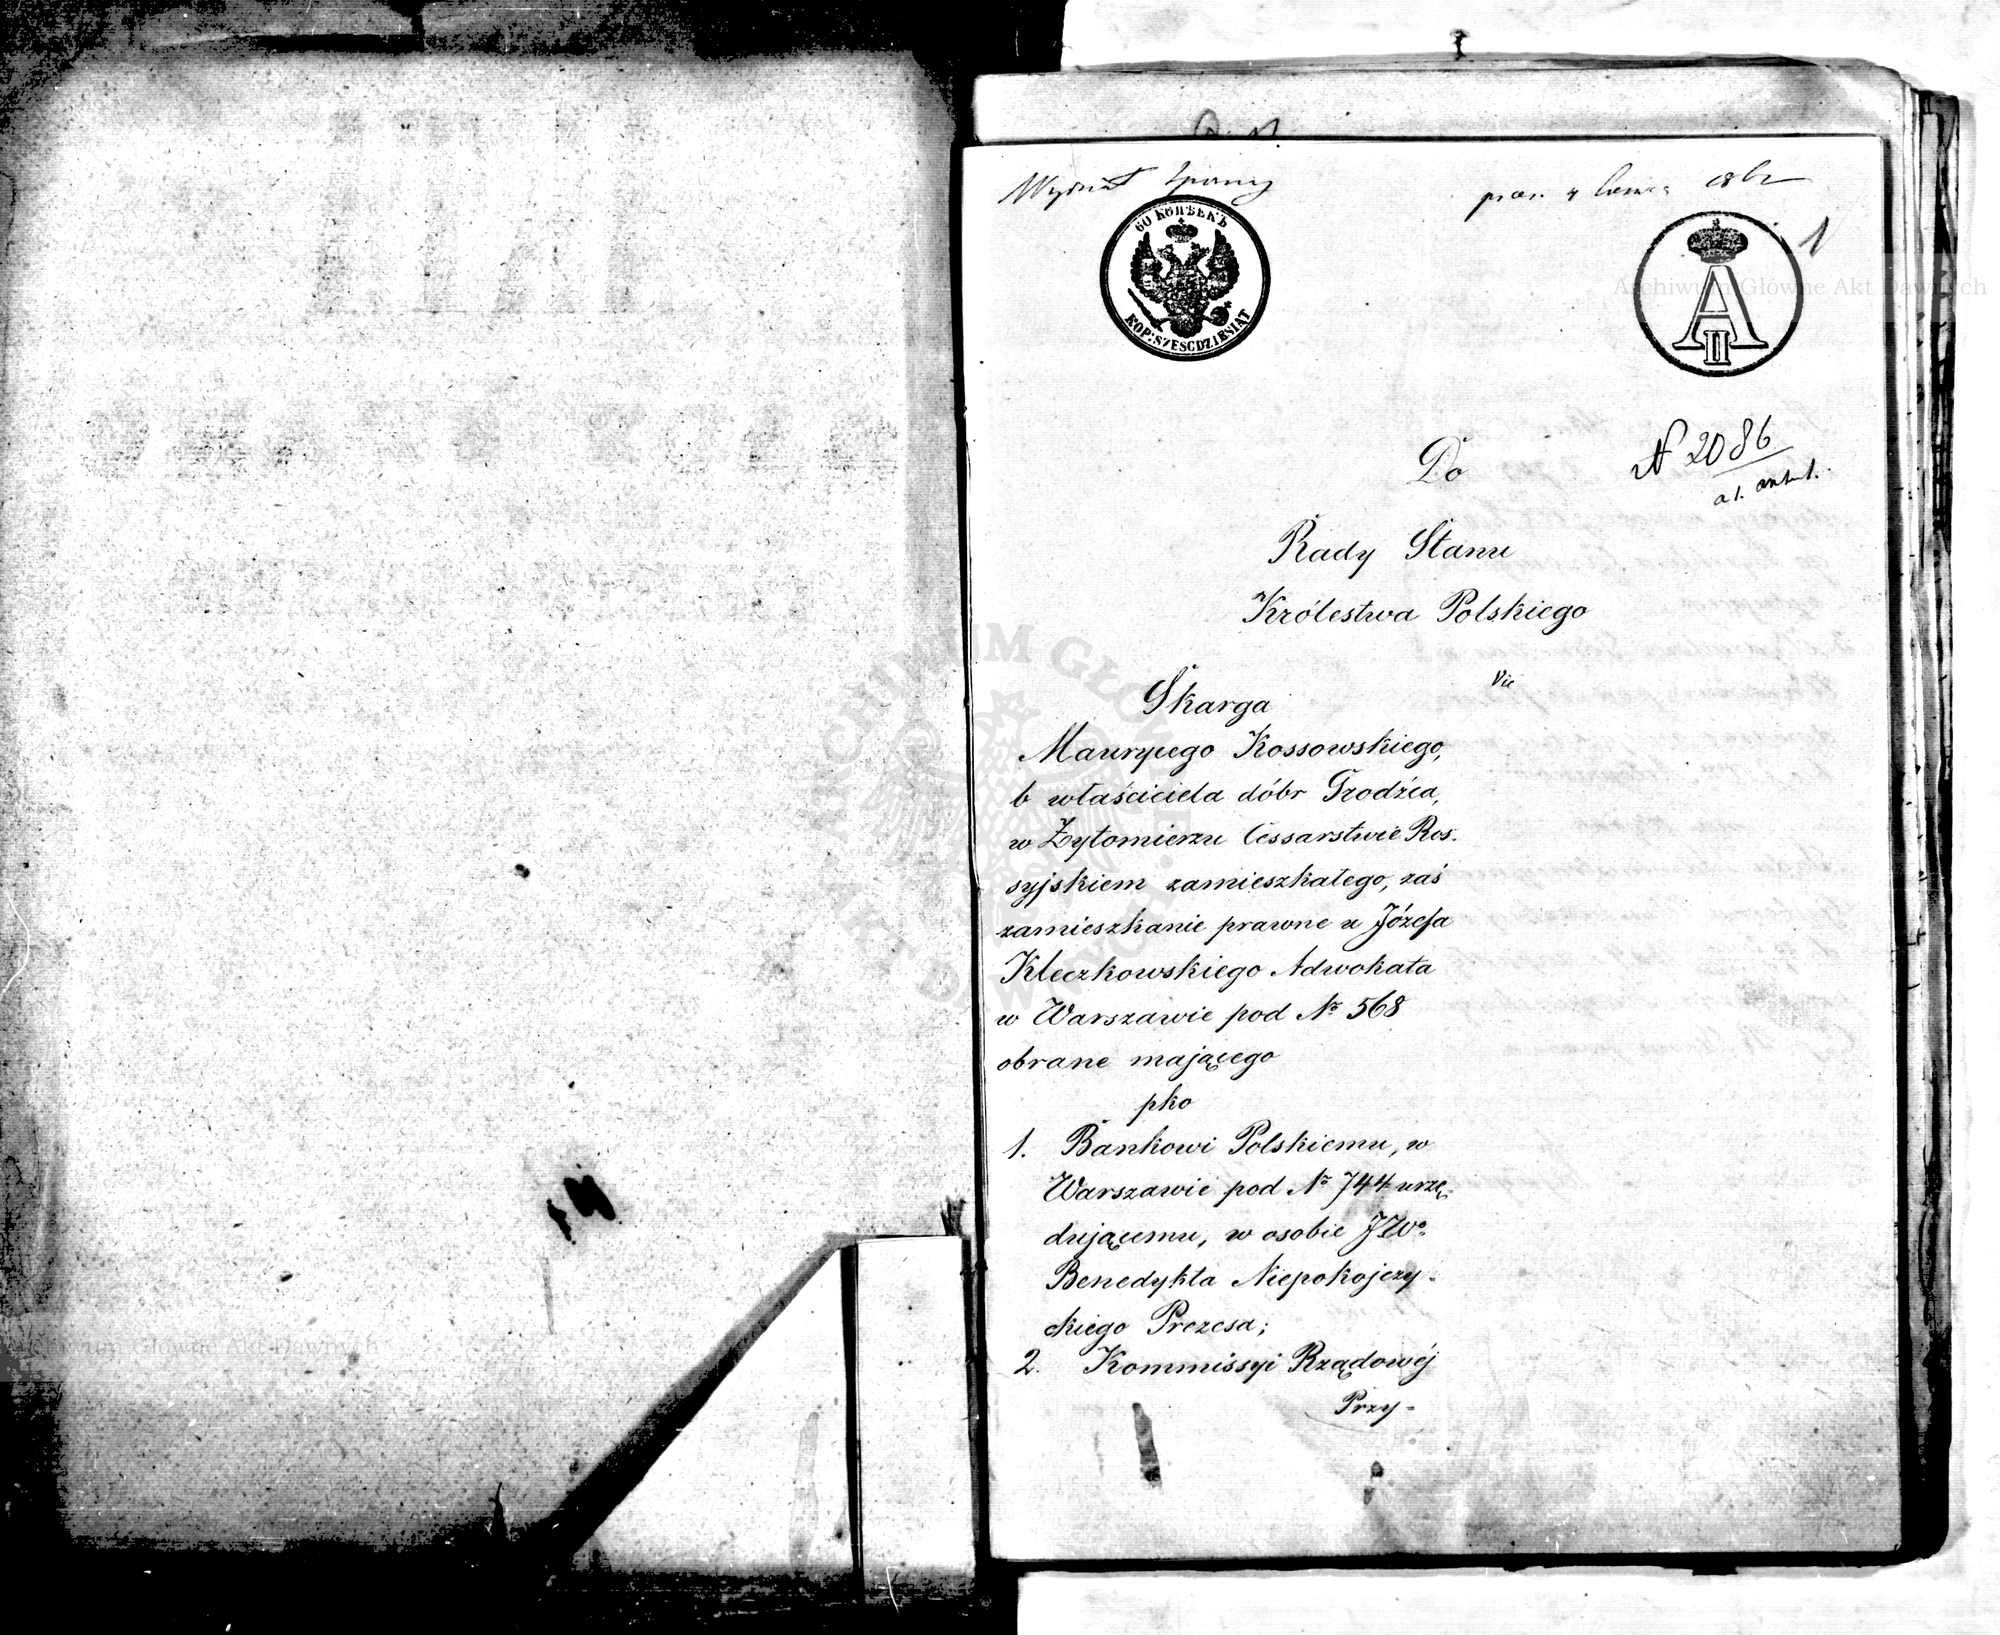 Wydział Sporny
prez. 4 Czerwca 1862
60 КОПѢЕКЪ
KOP: SZESCDZIESIAT
A II
1
N 2086
Do
Rady Stanu
Królestwa Polskiego
Skarga
Maurycego Kossowskiego,
b właściciela dóbr Grodźca,
w Żytomierzu Cessarstwie Ros-
syjskiem zamieszkałego, zaś
zamieszkanie prawne u Józefa
Kleczkowskiego Adwokata
w Warszawie pod No 568
obrane mającego
pko
1. Bankowi Polskiemu, w
Warszawie pod No 744 urzę-
dującemu, w osobie JWo
Benedykta Niepokojczy-
ckiego Prezesa;
2. Kommissyi Rządowéj
Przy-
ARCHIWUM GŁÓWNE AKT DAWNYCH
Archiwum Główne Akt Dawnych
Archiwum Główne Akt Dawnych